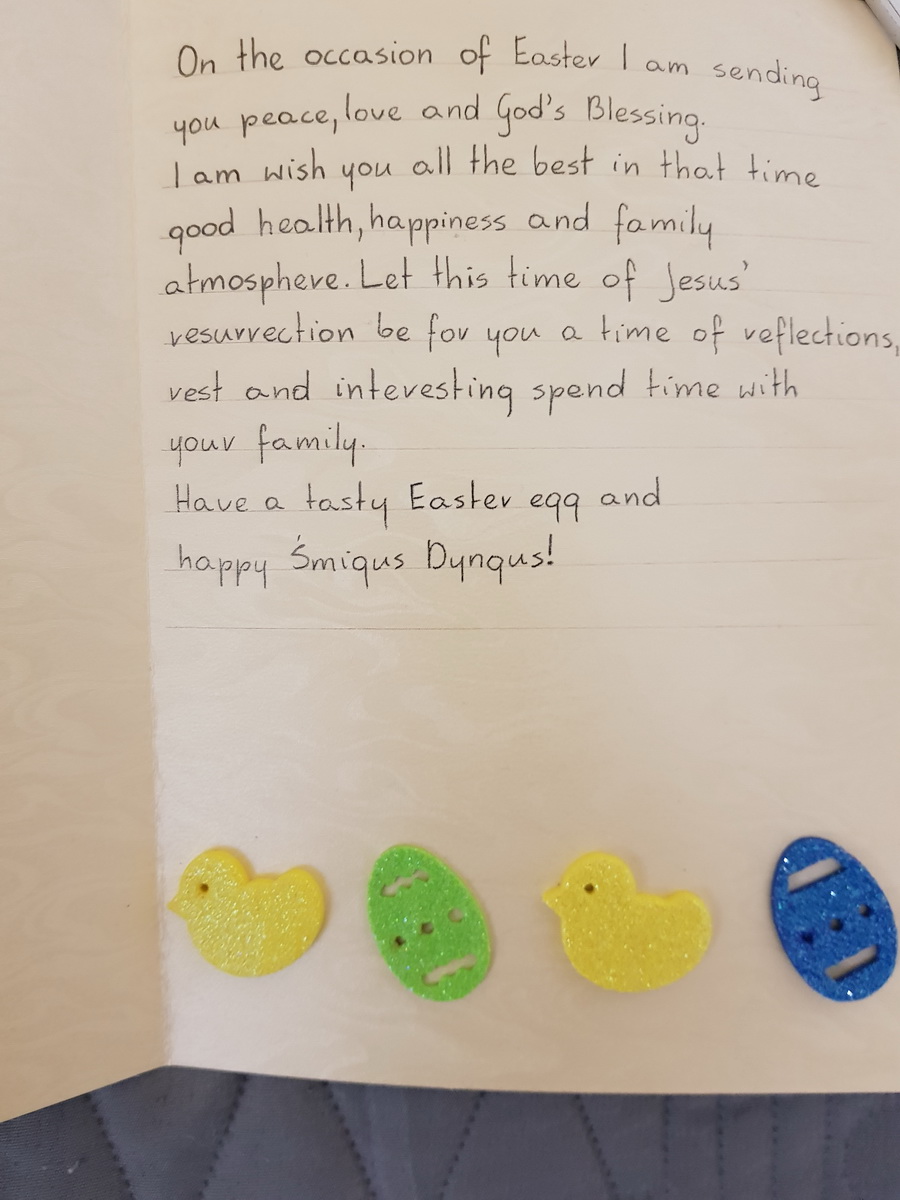 On the occasion of Easter I am sending
you peace, love and God's Blessing.
I am wish you all the best in that time
good health, happiness and family
atmosphere. Let this time of Jesus'
resurrection be for you a time of reflections,
rest and interesting spend time with
your family.
Have a tasty Easter egg and
happy Śmigus Dyngus!